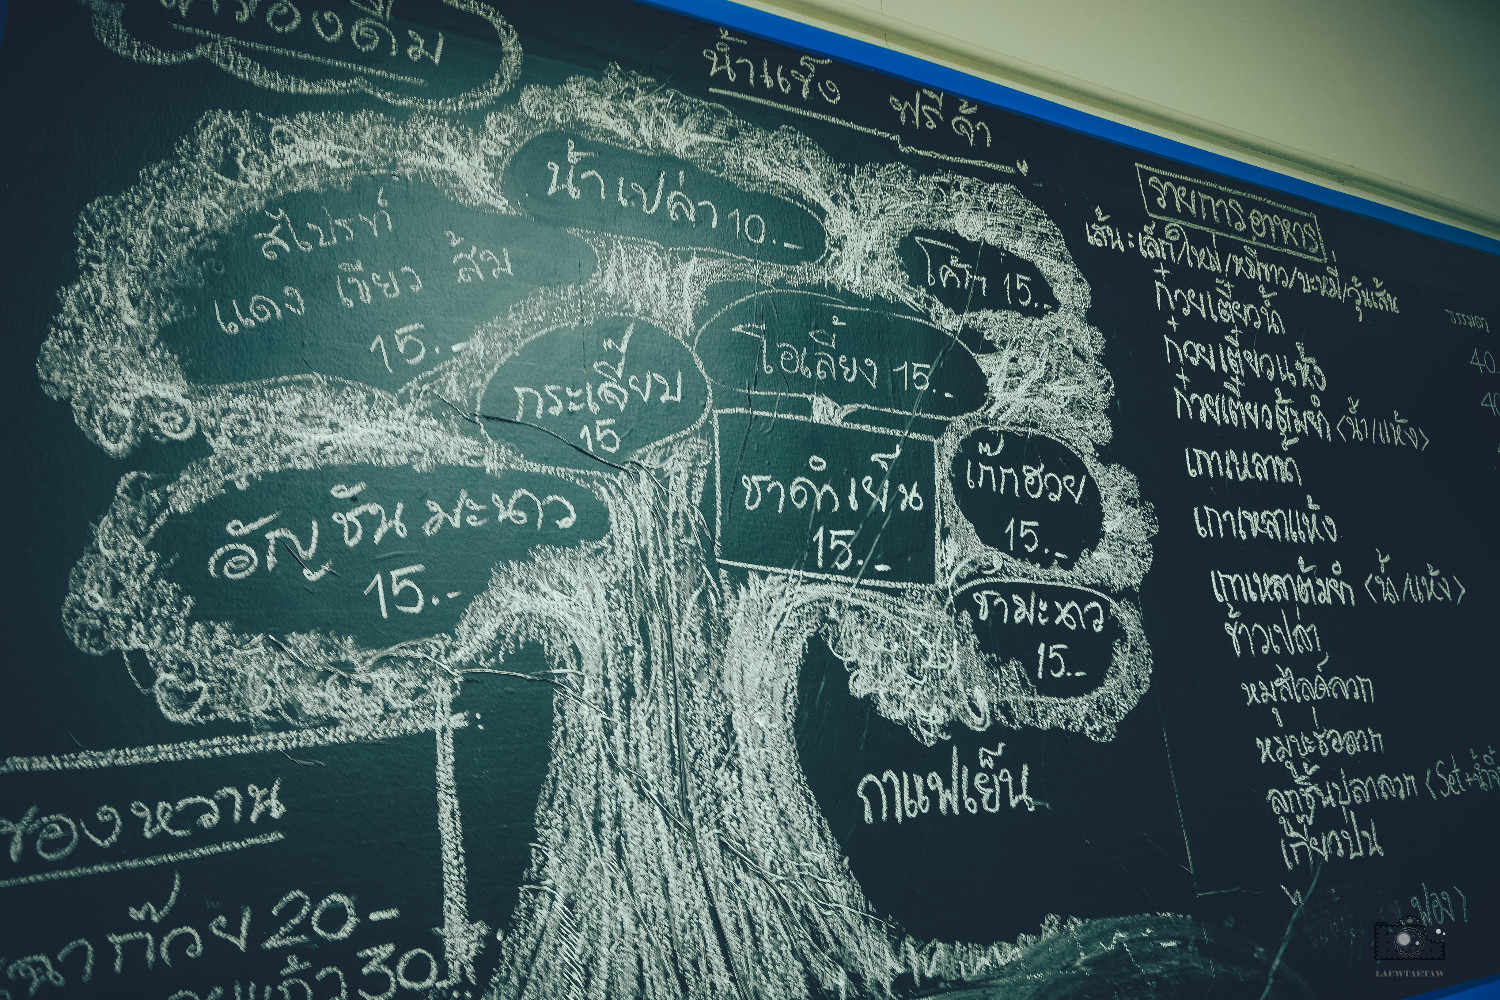 เครื่องดื่ม
น้ำแข็ง ฟรีค้า
น้ำเปล่า 10.-
สไปรท์
แดง เขียว ส้ม
15.-
โค้ก 15.-
กระเจี๊ยบ
15
โอเลี้ยง 15.-
อัญชันมะนาว
15.-
ชาดำเย็น
15.-
เก๊กฮวย
15.-
ชามะนาว
15.-
กาแฟเย็น
ของหวาน
20-
30
รายการอาหาร
เส้น:เล็ก/ใหญ่/หมี่ขาว/บะหมี่/วุ้นเส้น
ธรรมดา
ก๋วยเตี๋ยวน้ำ 40
ก๋วยเตี๋ยวแห้ง 40
ก๋วยเตี๋ยวต้มยำ (น้ำ/แห้ง)
เกาเหลาน้ำ
เกาเหลาแห้ง
เกาเหลาต้มยำ (น้ำ/แห้ง)
ข้าวเปล่า
หมูสไลด์ลวก
หมูบะช่อลวก
ลูกชิ้นปลาลวก (Set+น้ำจิ้ม
เกี๊ยวปบ
LAEWTAETAW